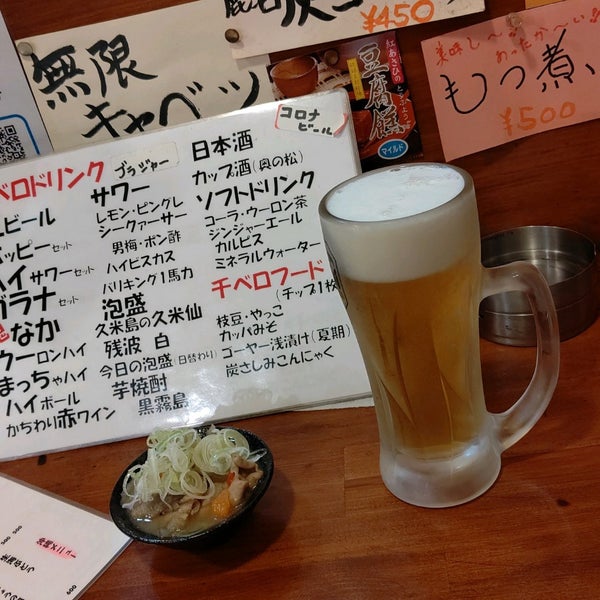 ¥450
無限
キャベツ
紅あさひの
豆腐餻
マイルド
美味し〜
あったか〜い
もつ煮
¥500
コロナ
ビール
ベロドリンク
ビール
ッピーセット
ハイサワーセット
ガラナセット
なか
ウーロンハイ
まっちゃハイ
ハイボール
かちわり赤ワイン
ブラジャー
サワー
レモン・ピングレ
シークァーサー
男梅・ポン酢
ハイビスカス
バリキング1馬力
泡盛
久米島の久米仙
残波 白
今日の泡盛(日替わり)
芋焼酎
黒霧島
日本酒
カップ酒(奥の松)
ソフトドリンク
コーラ・ウーロン茶
ジンジャーエール
カルピス
ミネラルウォーター
千ベロフード
(チップ1枚
枝豆・やっこ
カッパみそ
ゴーヤー浅漬け(夏期)
炭さしみこんにゃく
500
500
600